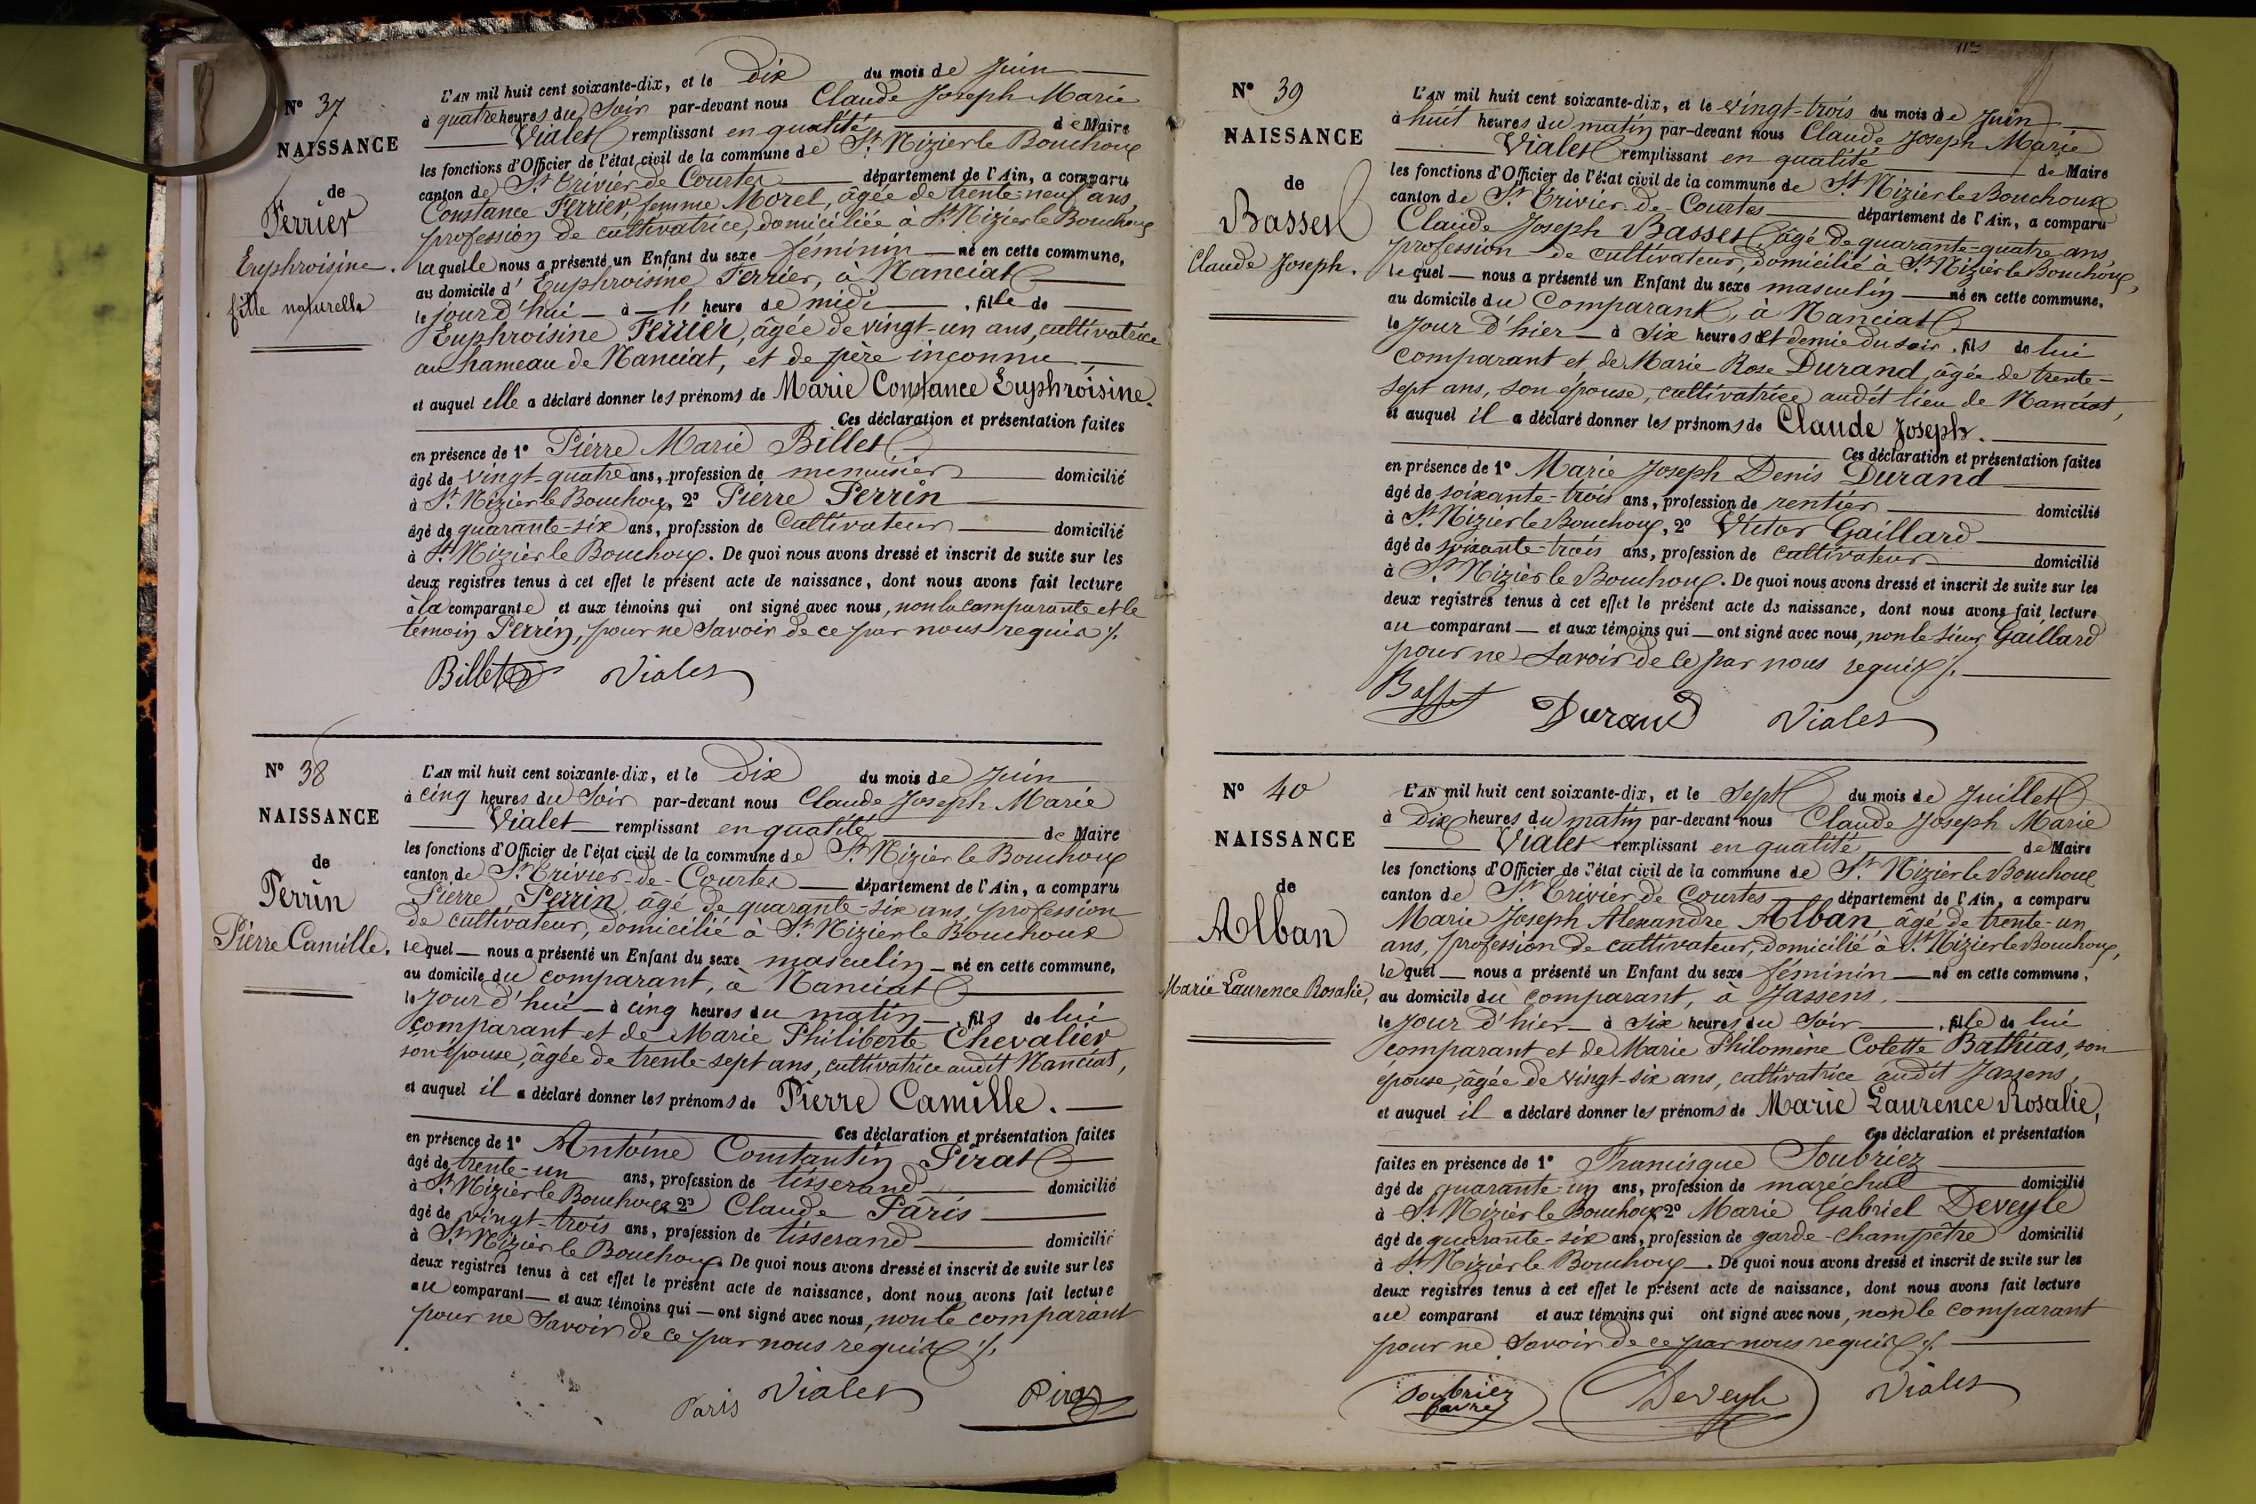 N° 37
NAISSANCE
de
Ferrier
Euphroisine.
fille naturelle
L'AN mil huit cent soixante-dix, et le Dix du mois de Juin
à quatre heures du Soir par-devant nous Claude Joseph Marie
Vialet remplissant en qualité de Maire
les fonctions d'Officier de l'état civil de la commune de St Nizier le Bouchoux
canton de St Trivier de Courtes département de l'Ain, a comparu
Constance Ferrier, femme Morel, âgée de trente-neuf ans,
profession de cultivatrice, domiciliée à St Nizier le Bouchoux
laquelle nous a présenté un Enfant du sexe féminin né en cette commune,
au domicile d' Euphroisine Ferrier, à Nanciat
le jour d'hui à 1 heure de midi, fille de
Euphroisine Ferrier, âgée de vingt-un ans, cultivatrice
au hameau de Nanciat, et de père inconnu
et auquel elle a déclaré donner les prénoms de Marie Constance Euphroisine.
Ces déclaration et présentation faites
en présence de 1° Pierre Marie Billet
âgé de vingt-quatre ans, profession de menuisier domicilié
à St Nizier le Bouchoux, 2° Pierre Perrin
âgé de quarante-six ans, profession de Cultivateur domicilié
à St Nizier le Bouchoux. De quoi nous avons dressé et inscrit de suite sur les
deux registres tenus à cet effet le présent acte de naissance, dont nous avons fait lecture
à la comparante et aux témoins qui ont signé avec nous, non la comparante et le
témoin Perrin, pour ne savoir de ce par nous requis ./.
Billet Vialet
N° 38
NAISSANCE
de
Perrin
Pierre Camille.
L'AN mil huit cent soixante-dix, et le Dix du mois de Juin
à cinq heures du Soir par-devant nous Claude Joseph Marie
Vialet remplissant en qualité de Maire
les fonctions d'Officier de l'état civil de la commune de St Nizier le Bouchoux
canton de St Trivier-de-Courtes département de l'Ain, a comparu
Pierre Perrin, âgé de quarante-six ans, profession
de cultivateur, domicilié à St Nizier le Bouchoux
lequel nous a présenté un Enfant du sexe masculin né en cette commune,
au domicile du comparant, à Nanciat
le jour d'hui à cinq heures du matin, fils de lui
comparant et de Marie Philiberte Chevalier
son épouse, âgée de trente-sept ans, cultivatrice audit Nanciat,
et auquel il a déclaré donner les prénoms de Pierre Camille.
Ces déclaration et présentation faites
en présence de 1° Antoine Constantin Pirat
âgé de trente-un ans, profession de tisserand domicilié
à St Nizier le Bouchoux 2° Claude Pâris
âgé de vingt-trois ans, profession de tisserand domicilié
à St Nizier le Bouchoux. De quoi nous avons dressé et inscrit de suite sur les
deux registres tenus à cet effet le présent acte de naissance, dont nous avons fait lecture
au comparant et aux témoins qui ont signé avec nous, non le comparant
pour ne savoir de ce par nous requis ./.
Paris Vialet Pirat
N° 39
NAISSANCE
de
Basset
Claude Joseph.
L'AN mil huit cent soixante-dix, et le vingt-trois du mois de Juin
à huit heures du matin par-devant nous Claude Joseph Marie
Vialet remplissant en qualité de Maire
les fonctions d'Officier de l'état civil de la commune de St Nizier le Bouchoux
canton de St Trivier-de-Courtes département de l'Ain, a comparu
Claude Joseph Basset, âgé de quarante-quatre ans,
profession de cultivateur, domicilié à St Nizier le Bouchoux,
lequel nous a présenté un Enfant du sexe masculin né en cette commune,
au domicile du Comparant, à Nanciat
le jour d'hier à six heures et demie du soir, fils de lui
comparant et de Marie Rose Durand, âgée de trente-
sept ans, son épouse, cultivatrice audit lieu de Nanciat,
et auquel il a déclaré donner les prénoms de Claude Joseph.
Ces déclaration et présentation faites
en présence de 1° Marie Joseph Denis Durand
âgé de soixante-trois ans, profession de rentier domicilié
à St Nizier le Bouchoux, 2° Victor Gaillard
âgé de soixante-trois ans, profession de cultivateur domicilié
à St Nizier le Bouchoux. De quoi nous avons dressé et inscrit de suite sur les
deux registres tenus à cet effet le présent acte de naissance, dont nous avons fait lecture
au comparant et aux témoins qui ont signé avec nous, non le sieur Gaillard
pour ne savoir de ce par nous requis ./.
Basset Durand Vialet
N° 40
NAISSANCE
de
Alban
Marie Laurence Rosalie,
L'AN mil huit cent soixante-dix, et le Sept du mois de Juillet
à Dix heures du matin par-devant nous Claude Joseph Marie
Vialet remplissant en qualité de Maire
les fonctions d'Officier de l'état civil de la commune de St Nizier le Bouchoux
canton de St Trivier de Courtes département de l'Ain, a comparu
Marie Joseph Alexandre Alban, âgé de trente-un
ans, profession de cultivateur, domicilié à St Nizier le Bouchoux,
lequel nous a présenté un Enfant du sexe féminin né en cette commune,
au domicile du comparant, à Jassens,
le jour d'hier à six heures du Soir, fille de lui
comparant et de Marie Philomène Colette Bathias, son
épouse, âgée de vingt-six ans, cultivatrice audit Jassens,
et auquel il a déclaré donner les prénoms de Marie Laurence Rosalie,
Ces déclaration et présentation
faites en présence de 1° Francisque Soubriez
âgé de quarante-un ans, profession de maréchal domicilié
à St Nizier le Bouchoux 2° Marie Gabriel Deveyle
âgé de quarante-six ans, profession de garde-champêtre domicilié
à St Nizier le Bouchoux. De quoi nous avons dressé et inscrit de suite sur les
deux registres tenus à cet effet le présent acte de naissance, dont nous avons fait lecture
au comparant et aux témoins qui ont signé avec nous, non le comparant
pour ne savoir de ce par nous requis ./.
Soubriez Deveyle Vialet